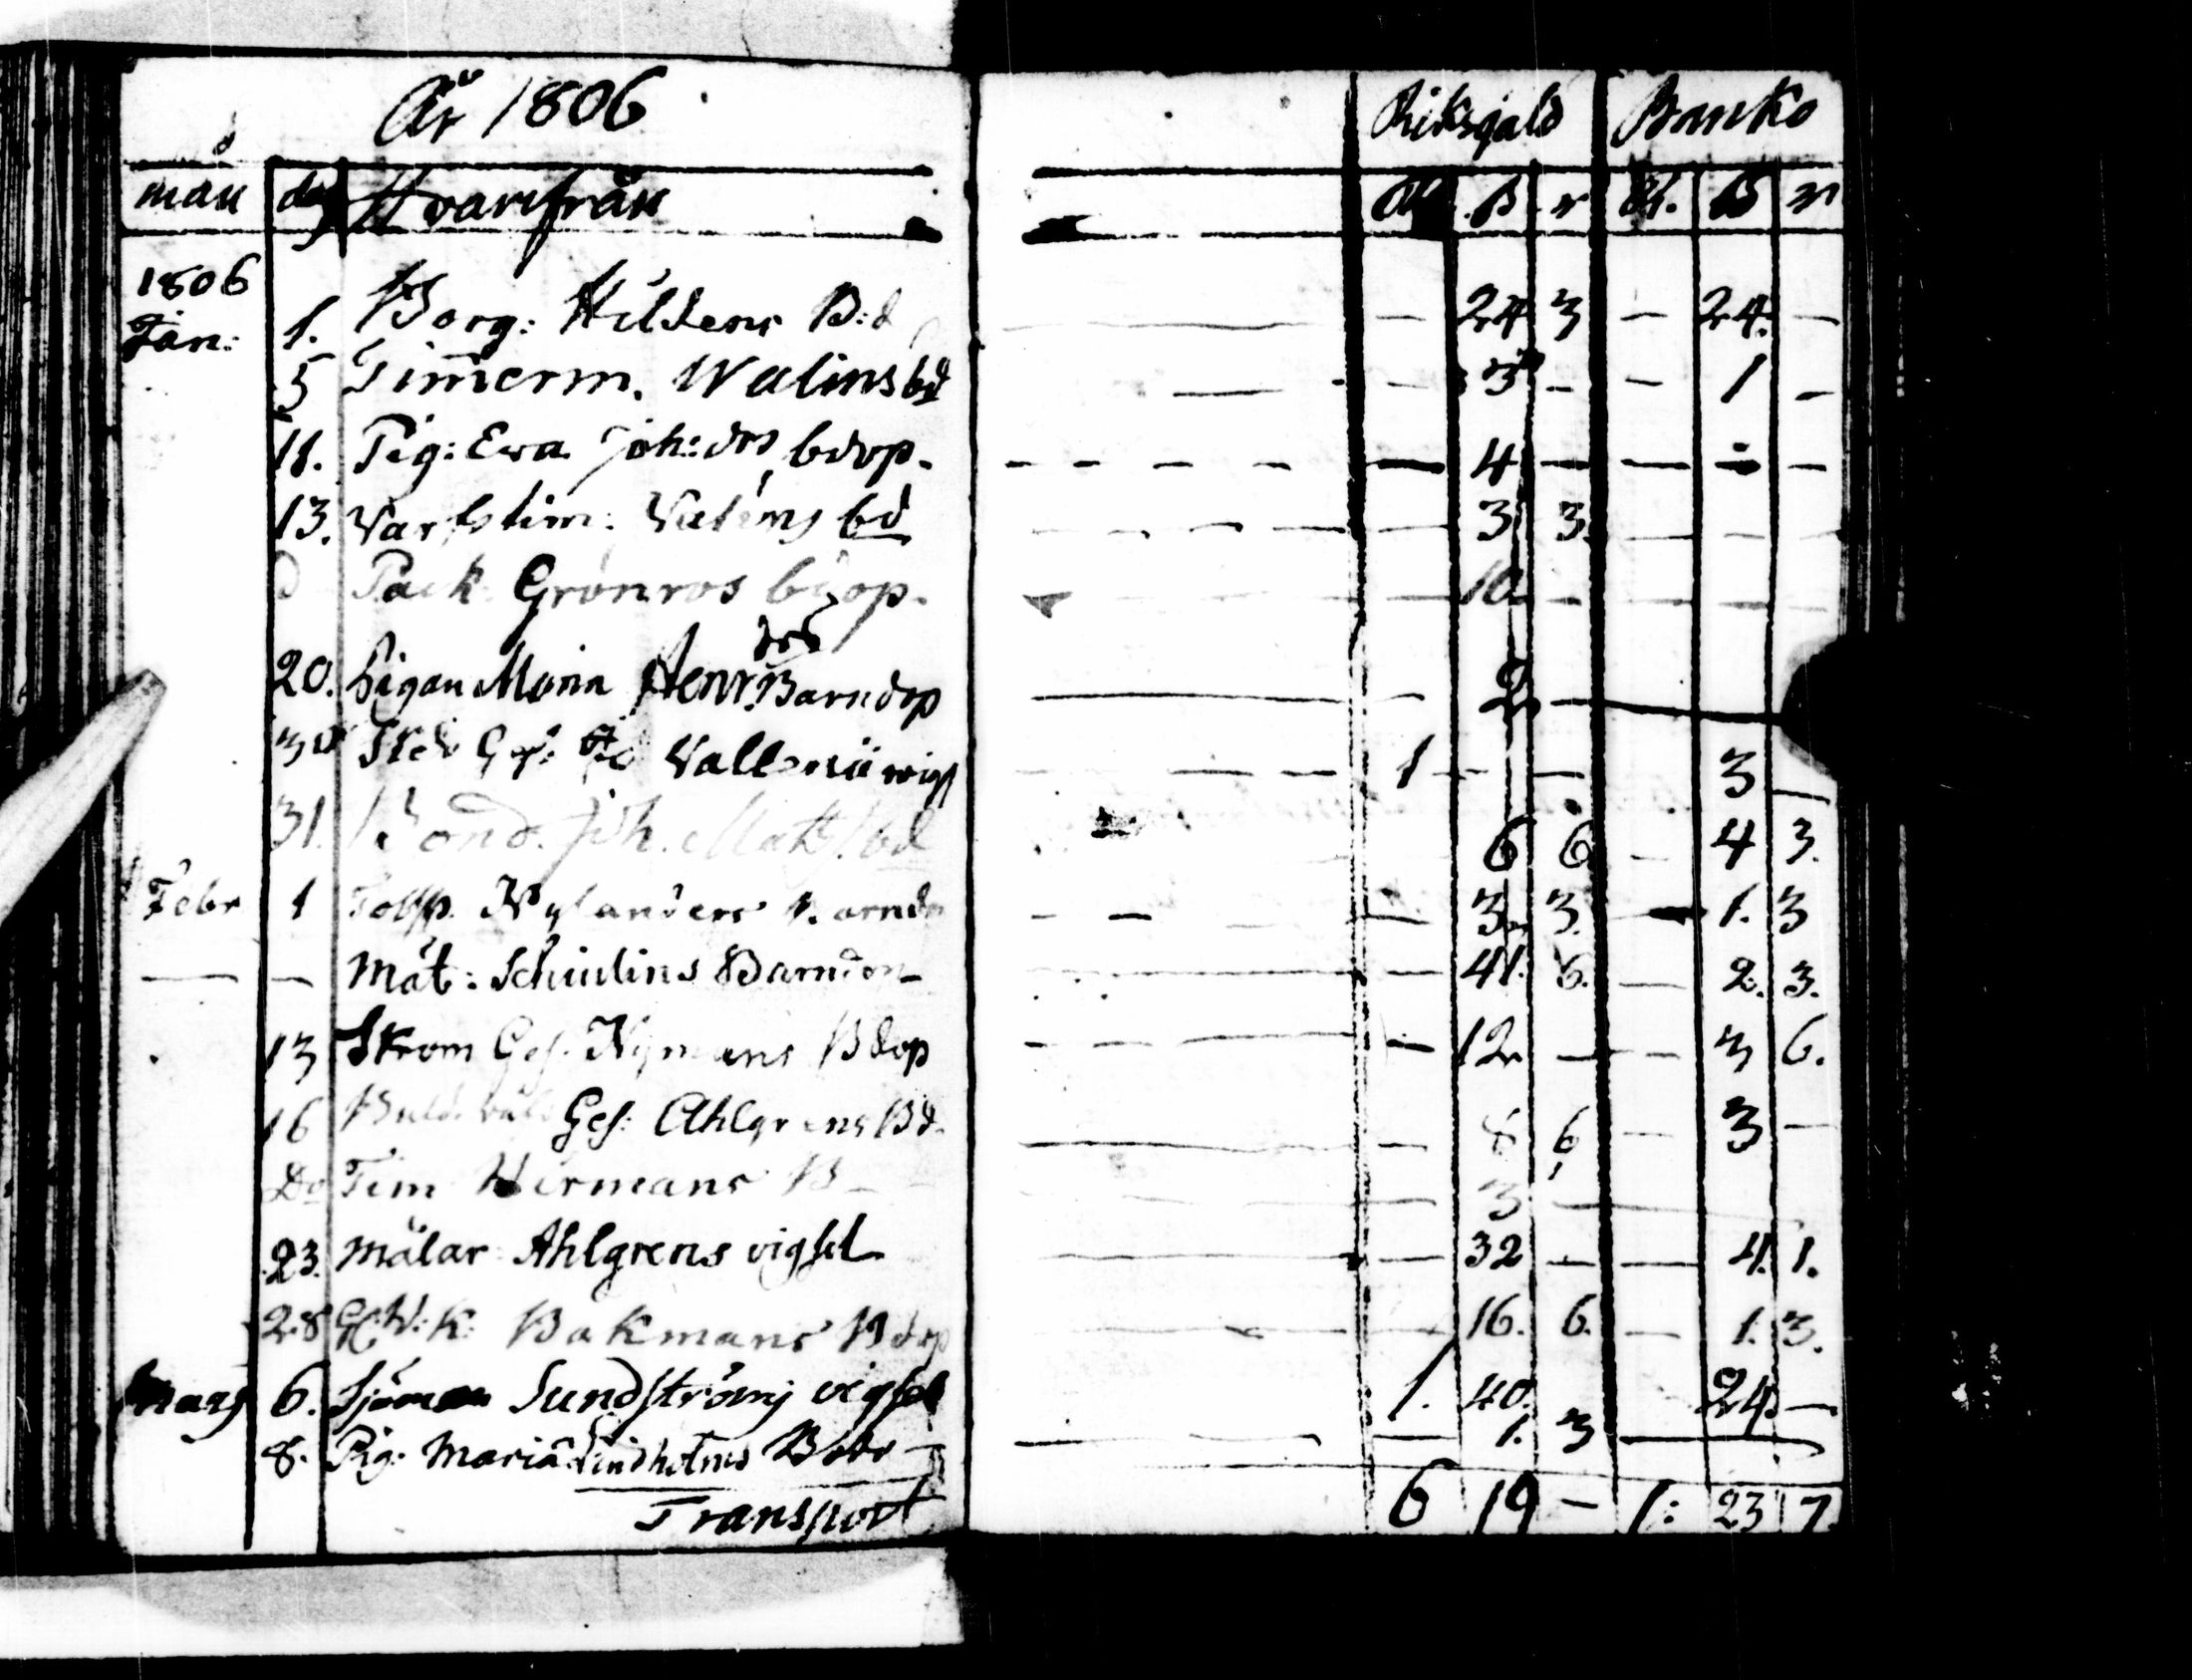 År 1806 Riksgäld Banko
mån dag Hvarifrån Rd ß r Rd. ß r
1806
Jan: 1. Borg: Hildens B:d — 24 3 — 24. —
5 Timmerm. Walins bd — 3 - - 1 -
11. Pig: Ewa Joh:drs bdop. — 4 — — - -
13. Varfstim: Valins bd — 3 3. — — —
d Pack. Grönroos bdop. — 10 — — — —
drs
20. Pigan Maria Henr: Barndop — 2 —
30 Gef: Vallenii vigs 1 - — 3 —
31. Bond. Joh. Matts. bd 6 6 — 4 3.
Febr 1 Nylanders Barndo — 3 3. — 1. 3
— — Mat: Schulins Barndop — 41. 6. — 2. 3.
13 Skom Ges. Nymans Bdop — 12 — — 3 6.
16 Ges: Ahlgrens Bd. — 8 6 — 3 —
Do Tim Hermans B — 3 —
23. Målar Ahlgrens vigsel — 32 — — 4. 1.
28 Bakmans Bdop — 16. 6. — 1. 3.
Mars 6. Sjöman Sundströms vigsel 1. 40. 24 —
8. Pig: Maria Lindholms B — 1. 3 —
Transport 6 19 — 1: 23 7